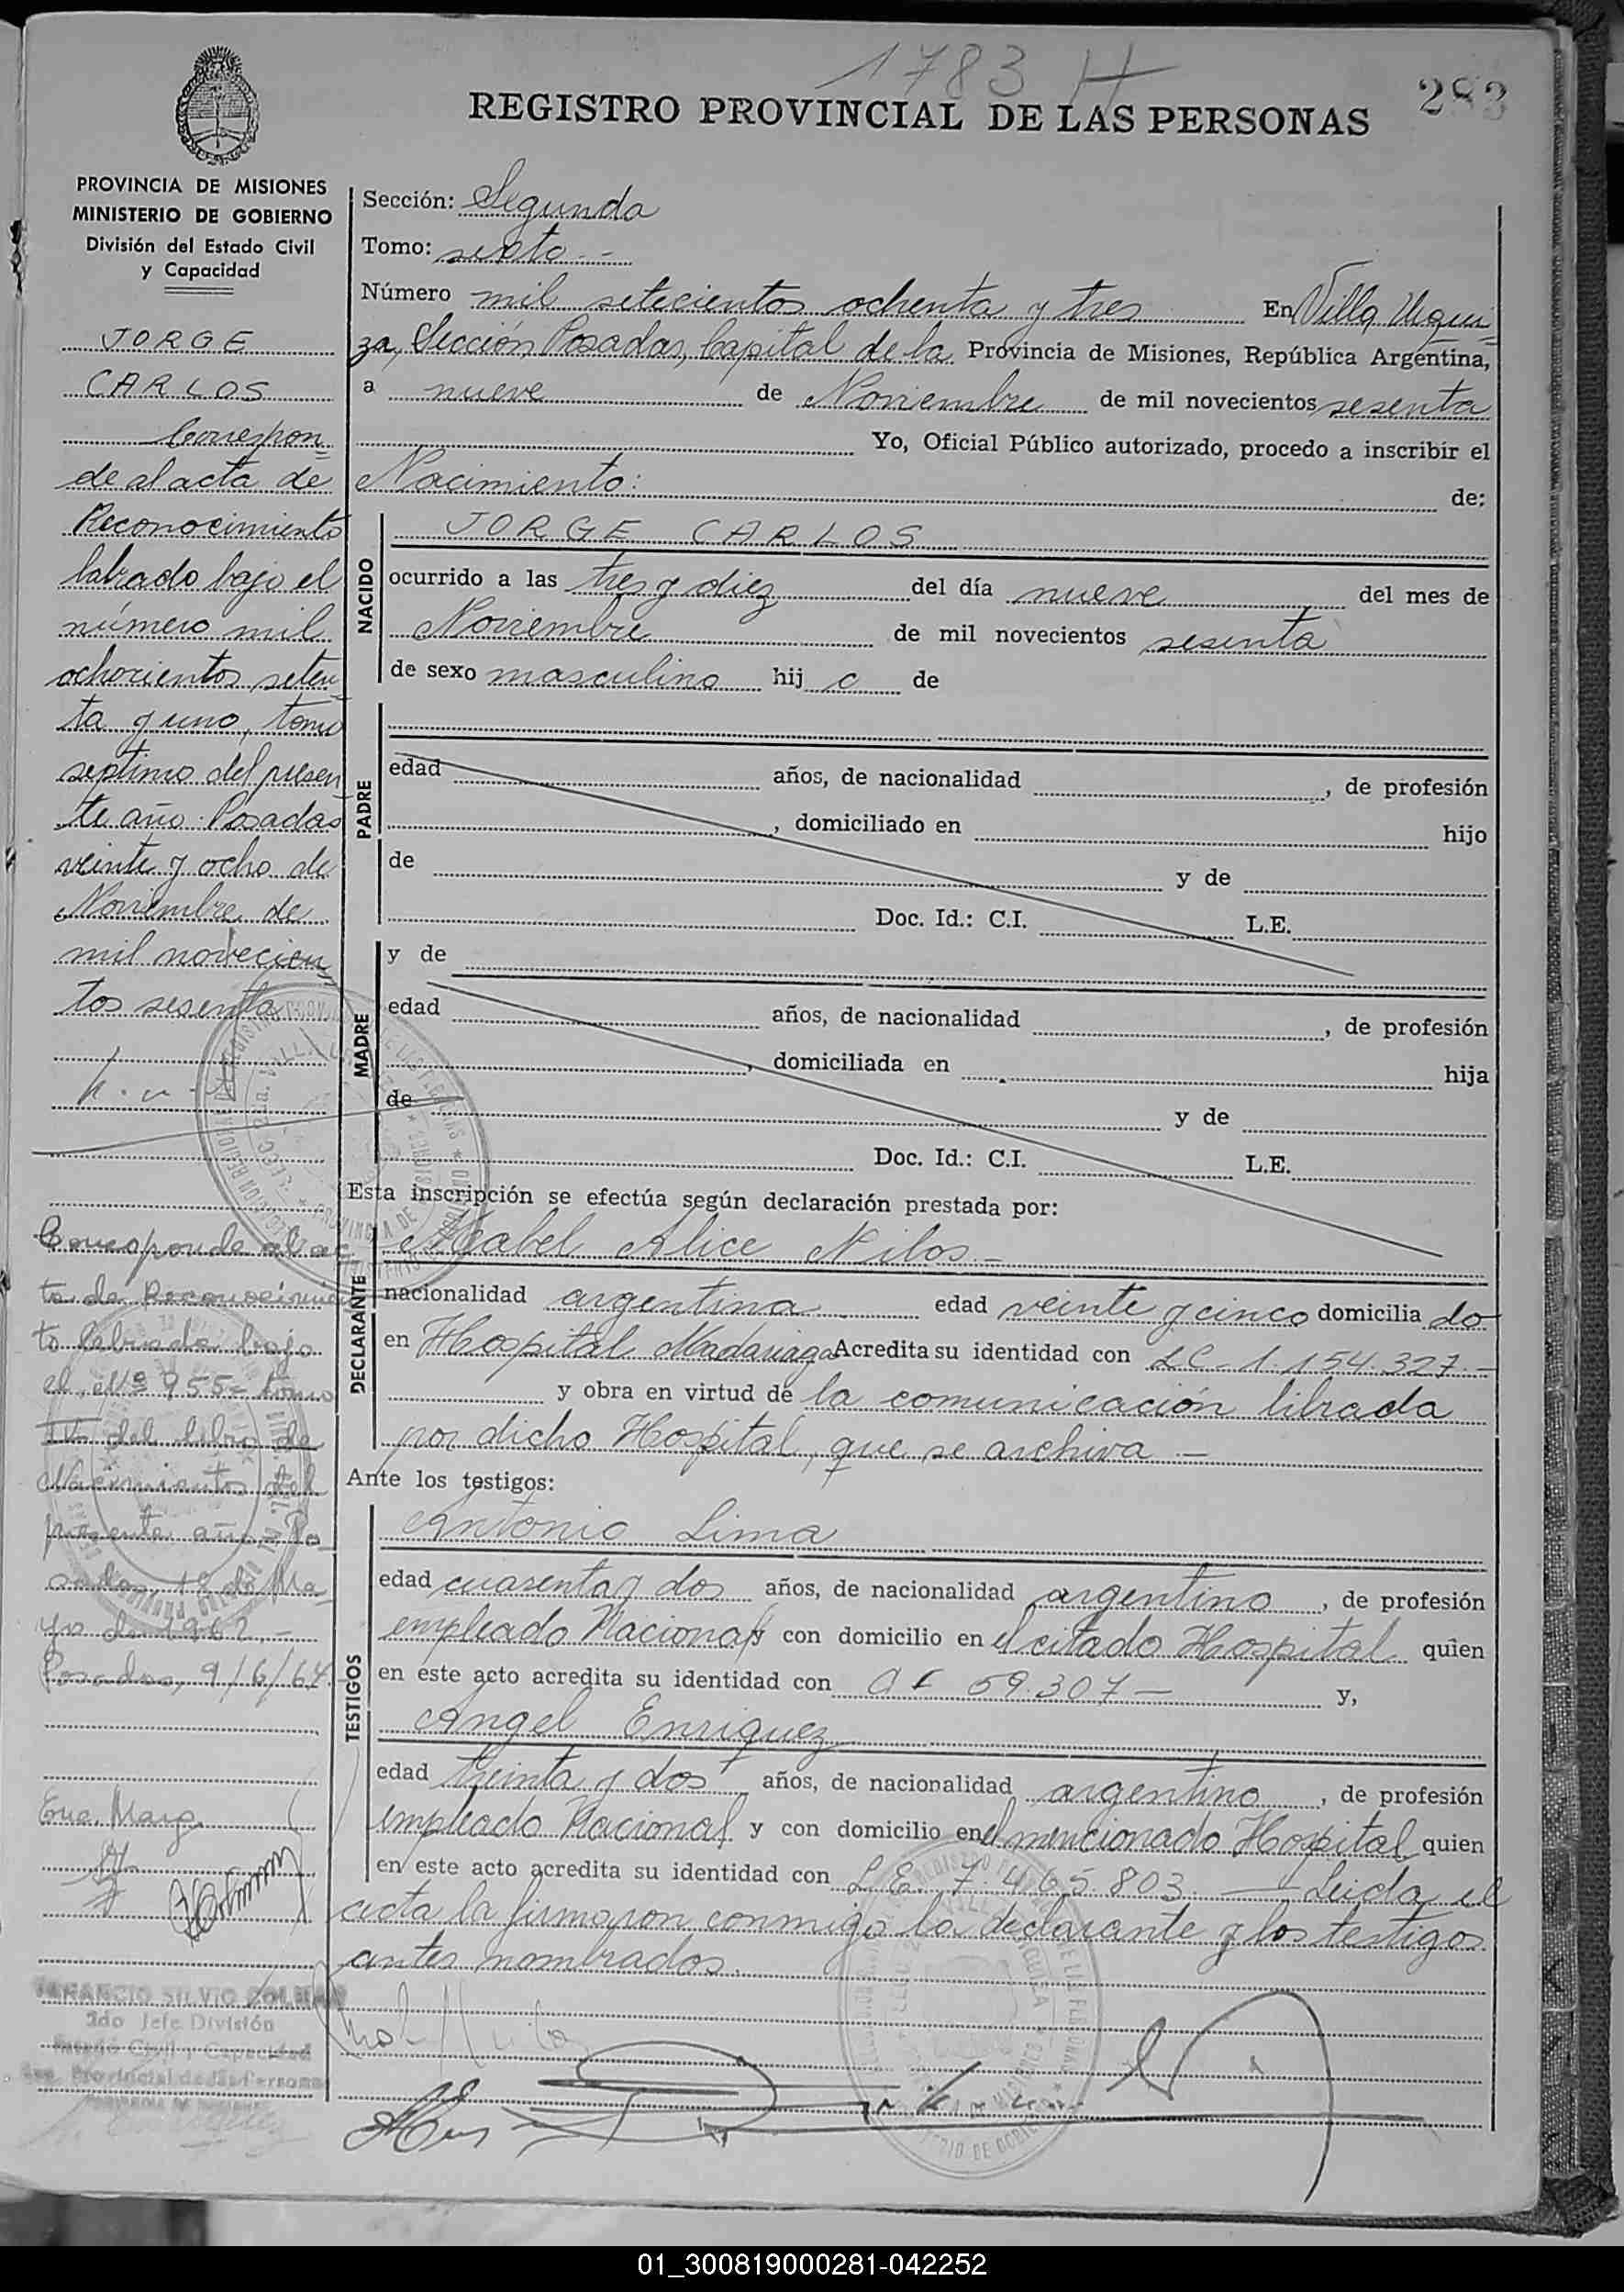 1783 H
283
REGISTRO PROVINCIAL DE LAS PERSONAS
PROVINCIA DE MISIONES
MINISTERIO DE GOBIERNO
División del Estado Civil
y Capacidad
JORGE
CARLOS
Correspon=
de al acta de
Reconocimiento
labrado bajo el
número mil
ochocientos seten=
ta y uno, tomo
septimo del presen=
te año. Posadas
veinte y ocho de
Noviembre de
mil novecien=
tos sesenta
Corresponde al ac
ta de Reconocimien
to labrada bajo
el Nº 955- tomo
IV del libro de
Nacimientos del
presente año. Po-
sadas, 18 de Ma-
yo de 1962.-
Posadas, 9/6/64.
Sección: Segunda
Tomo: sexto.-
Número mil setecientos ochenta y tres En Villa Urqui=
za, Sección Posadas, Capital de la Provincia de Misiones, República Argentina,
a nueve de Noviembre de mil novecientos sesenta
Yo, Oficial Público autorizado, procedo a inscribir el
Nacimiento: de:
NACIDO
JORGE CARLOS
ocurrido a las tres y diez del día nueve del mes de
Noviembre de mil novecientos sesenta
de sexo masculino hij o de
PADRE
edad años, de nacionalidad , de profesión
, domiciliado en hijo
de y de
Doc. Id.: C.I. L.E.
MADRE
y de
edad años, de nacionalidad , de profesión
, domiciliada en hija
de y de
Doc. Id.: C.I. L.E.
Esta inscripción se efectúa según declaración prestada por:
DECLARANTE
Mabel Alice Nilos.-
nacionalidad argentina edad veinte y cinco domicilia do
en Hospital Madariaga Acredita su identidad con LC-1.154.327.-
y obra en virtud de la comunicación librada
por dicho Hospital, que se archiva.-
Ante los testigos:
TESTIGOS
Antonio Lima
edad cuarenta y dos años, de nacionalidad argentino, de profesión
empleado Nacional y con domicilio en el citado Hospital quien
en este acto acredita su identidad con 59.307- y,
Angel Enriquez
edad treinta y dos años, de nacionalidad argentino, de profesión
empleado Nacional y con domicilio en el mencionado Hospital quien
en este acto acredita su identidad con L.E. 7.465.803.- Leida el
acta la firmaron conmigo la declarante y los testigos
antes nombrados.
SILVIO
2do Jefe División
Estado Civil y Capacidad
Reg. Provincial de las Personas
01_300819000281-042252